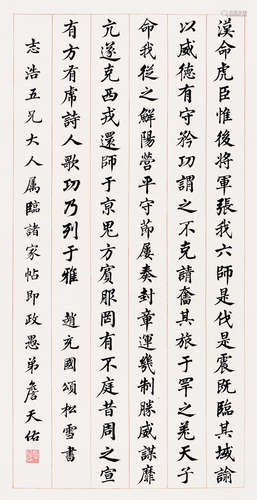 漢命虎臣惟後將軍張我六師是伐是震既臨其域諭
以威德有守矜功謂之不克請奮其旅于罕之羌天子
命我從之鮮陽營平守節屢奏封章運幾制勝威謀靡
亢遂克西戎還師于京鬼方賓服罔有不庭昔周之宣
有方有虎詩人歌功乃列于雅 趙充國頌松雪書
志浩五兄大人属臨諸家帖即政愚弟詹天佑